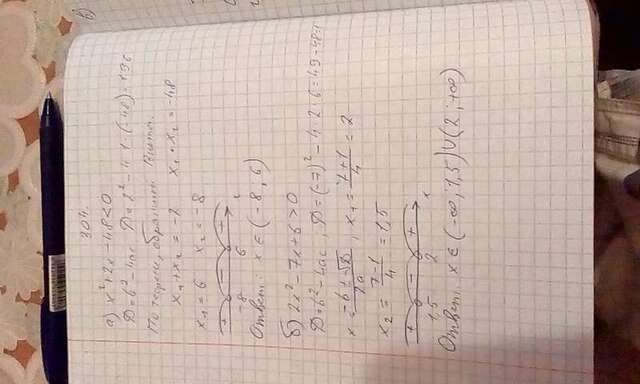 304.
а) x²+2x-48<0
D=b²-4ac D=2²-4·1·(-48)=196
По теореме, обратной Виета:
x₁+x₂=-2 x₁·x₂=-48
x₁=6 x₂=-8
+ - +
-8 6 x
Ответ: x∈(-8;6)
б) 2x²-7x+6>0
D=b²-4ac, D=(-7)²-4·2·6=49-48=1
x=-b±√D/2a, x₁=7+1/4=2
x₂=7-1/4=1,5
+ - +
1,5 2 x
Ответ: x∈(-∞;1,5)∪(2;+∞)